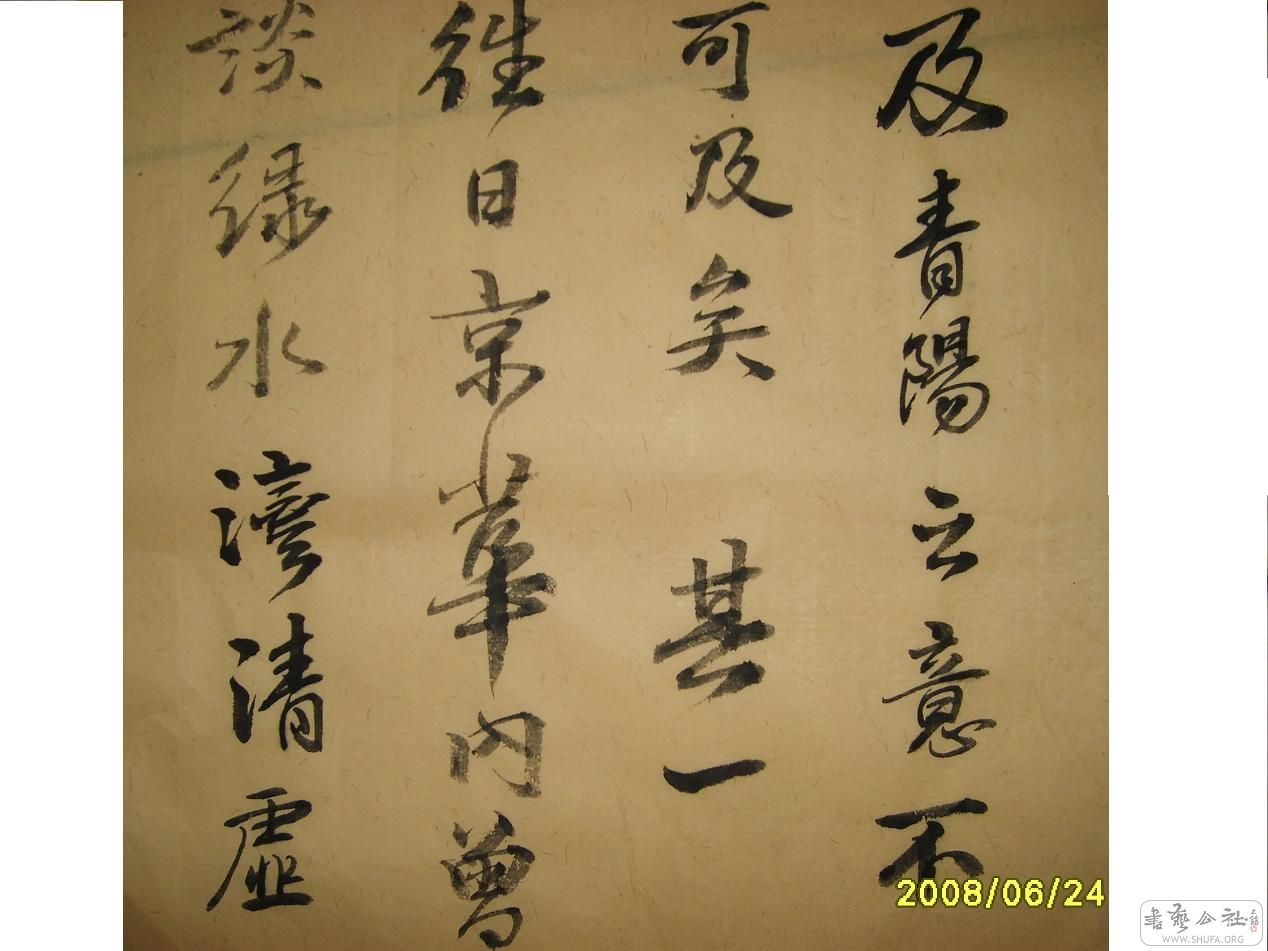 及青陽之意不
可及矣 其一
往日京華內曾
談綠水灣清虛
2008/06/24
書藝公社
WWW.SHUFA.ORG